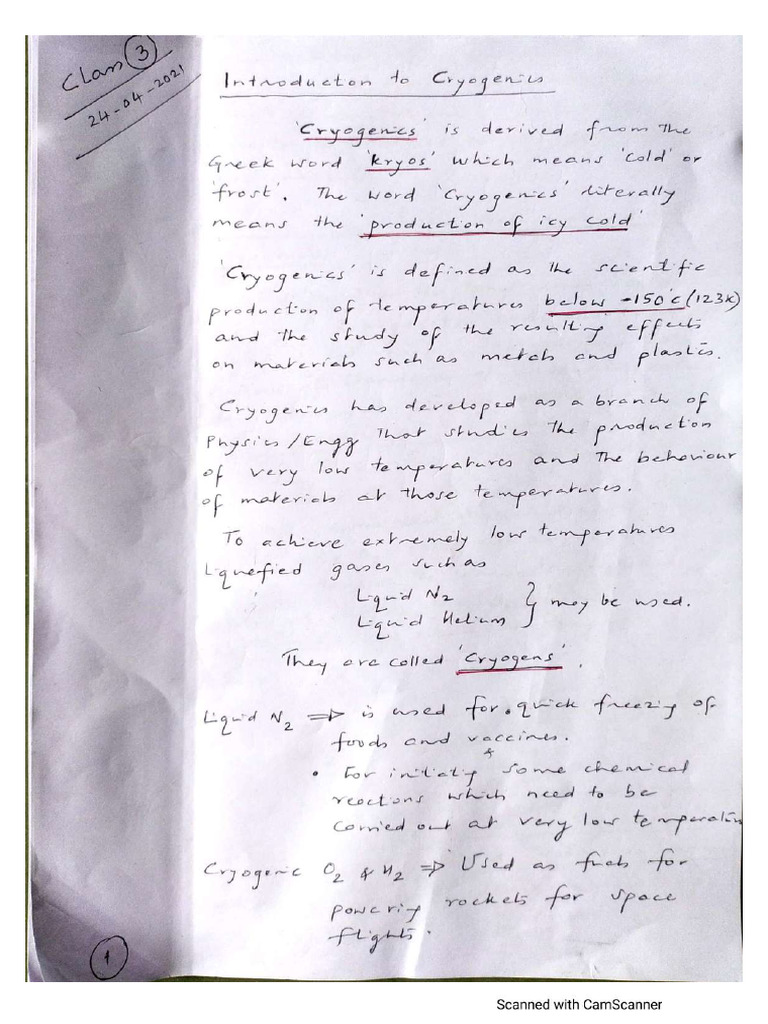 Class 3
24-04-2021
Introduction to Cryogenics
'Cryogenics' is derived from the
Greek word 'kryos' which means 'cold' or
'frost'. The word 'Cryogenics' literally
means the 'production of icy cold'
'Cryogenics' is defined as the scientific
production of temperatures below -150°c (123K)
and the study of the resulting effects
on materials such as metals and plastics.
Cryogenics has developed as a branch of
Physics/Engg That studies the production
of very low temperatures and the behaviour
of materials at those temperatures.
To achieve extremely low temperatures
Liquefied gases such as
Liquid N2
Liquid Helium } may be used.
They are called 'Cryogens'.
Liquid N2 ⇒ is used for • quick freezing of
foods and vaccines.
• For initiating some chemical
reactions which need to be
carried out at very low temperatures
Cryogenic O2 & H2 ⇒ Used as fuels for
powering rockets for space
flights.
1
Scanned with CamScanner